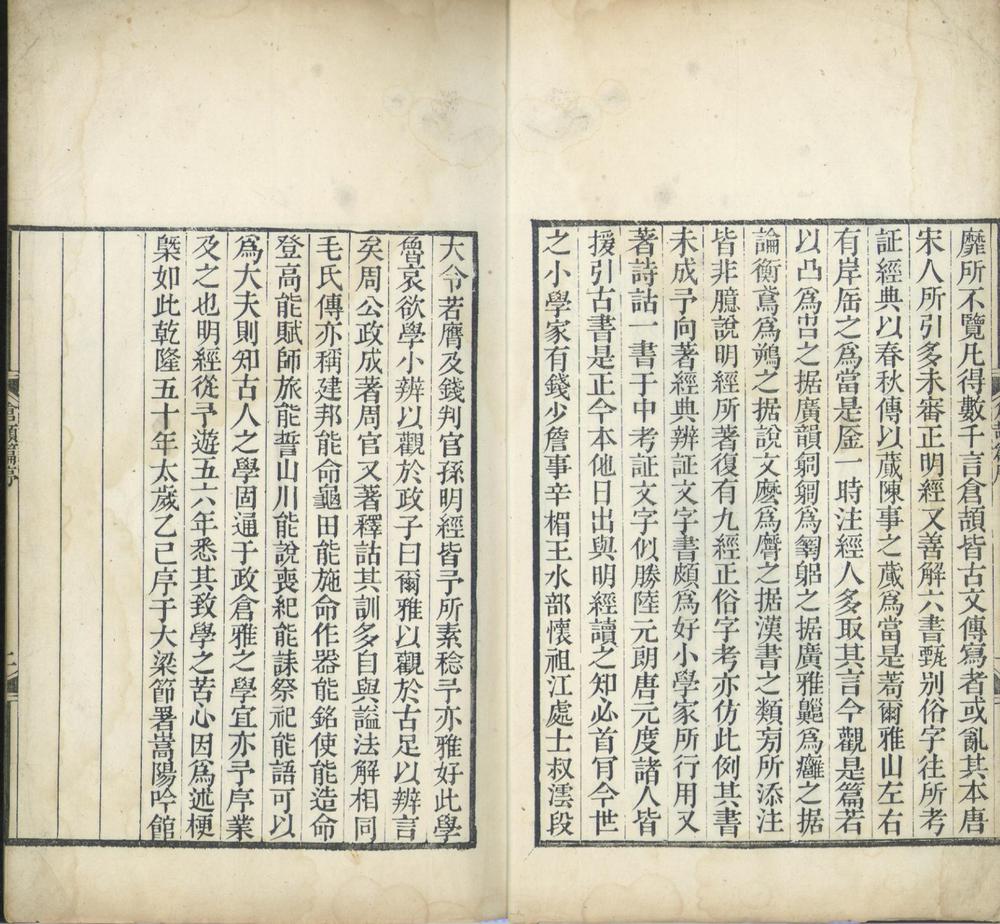 靡所不覽凡得數千言倉頡皆古文傳寫者或亂其本唐
宋人所引多未審正明經又善解六書甄别俗字往所考
証經典以春秋傳以蕆陳事之蕆爲當是蒇爾雅山左右
有岸厒之爲當是㕉一時注經人多取其言今觀是篇若
以凸爲𠙴之据廣韻匑匑爲匔躳之据廣雅㿺爲癰之据
論衡鳶爲鴺之据說文麽爲麿之据漢書之類㫄所添注
皆非臆說明經所著復有九經正俗字考亦仿此例其書
未成予向著經典辨証文字書頗爲好小學家所行用又
著詩詁一書于中考証文字似勝陸元朗唐元度諸人皆
援引古書是正今本他日出與明經讀之知必首肎今世
之小學家有錢少詹事辛楣王水部懷祖江處士叔澐段
大令若膺及錢判官孫明經皆予所素稔予亦雅好此學
魯哀欲學小辨以觀於政子曰爾雅以觀於古足以辨言
矣周公政成著周官又著釋詁其訓多自與謚法解相同
毛氏傳亦稱建邦能命龜田能施命作器能銘使能造命
登高能賦師旅能誓山川能說喪紀能誄祭祀能語可以
爲大夫則知古人之學固通于政倉雅之學宜亦予序業
及之也明經從予遊五六年悉其致學之苦心因爲述梗
槩如此乾隆五十年太歲乙己序于大梁節署嵩陽吟館
倉頡篇序
二